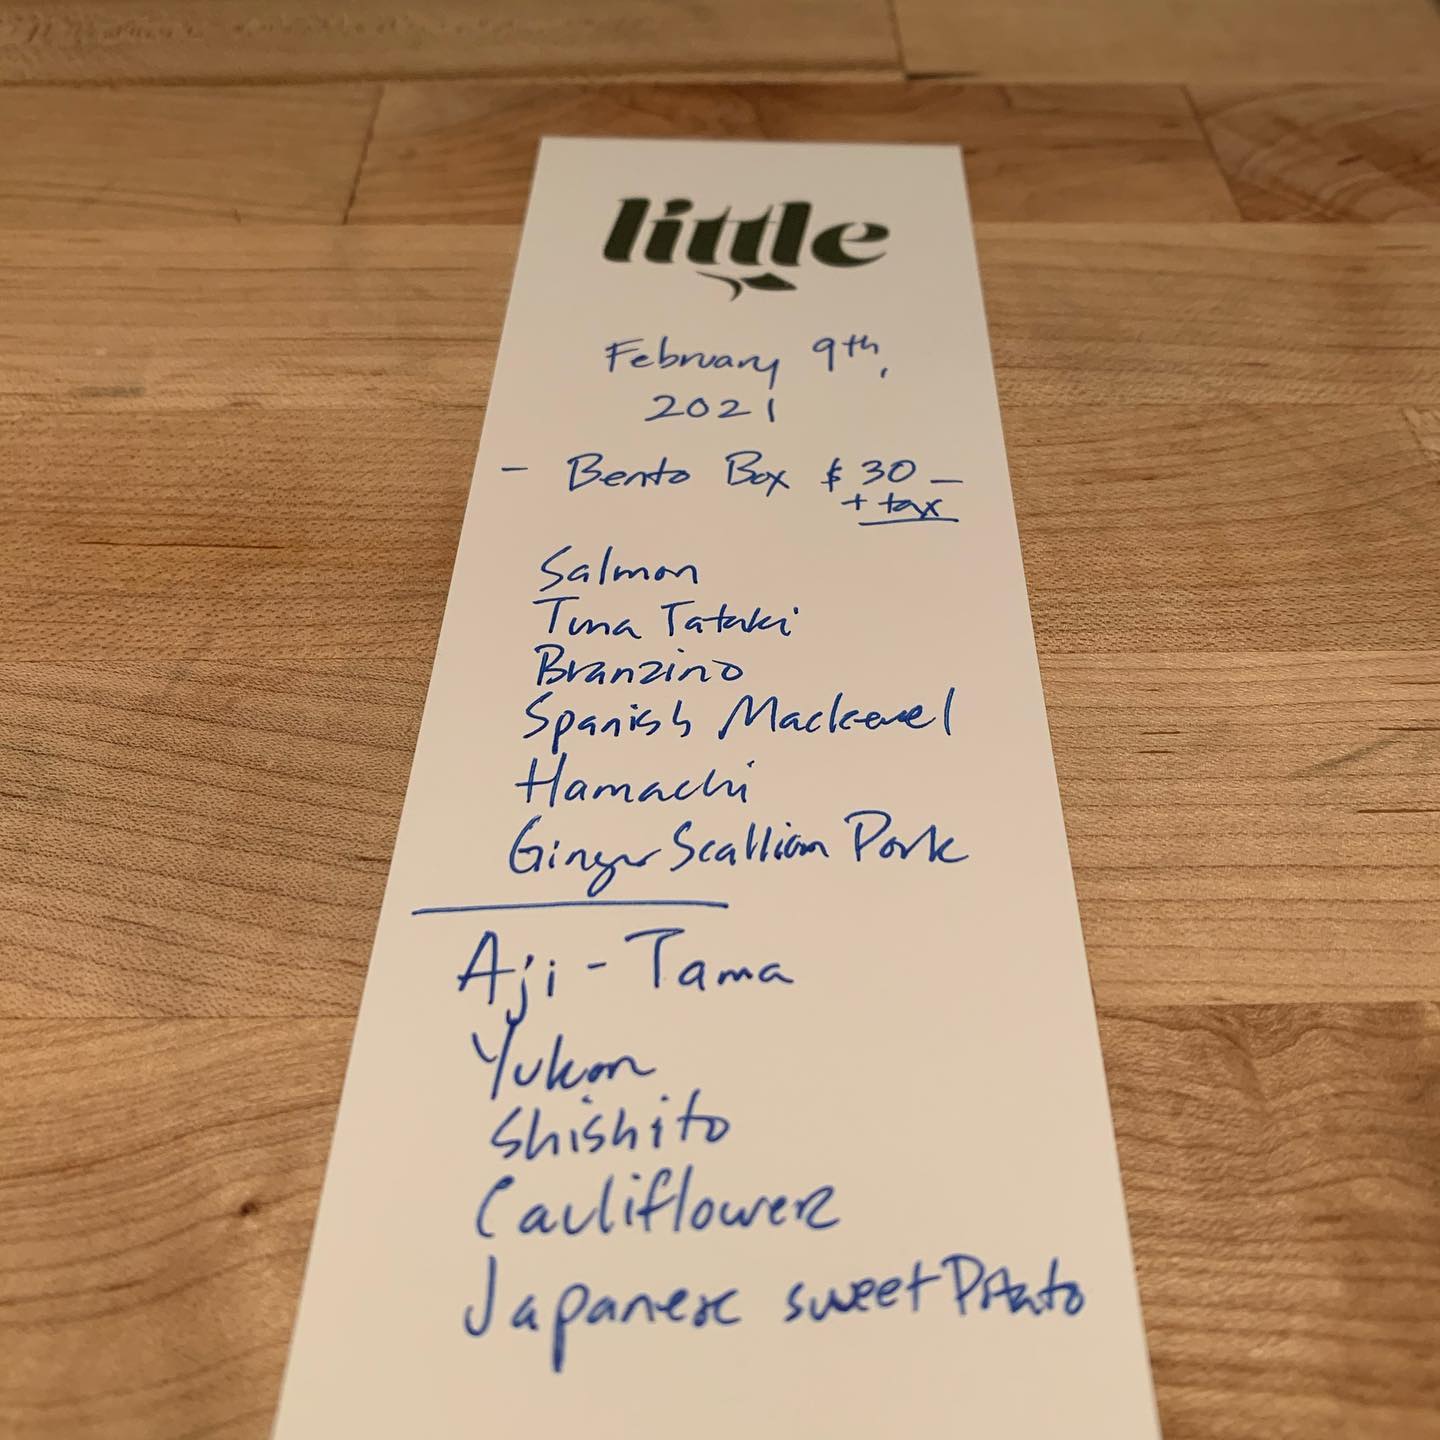 little
February 9th,
2021
- Bento Box $30 -
+ tax
Salmon
Tuna Tataki
Branzino
Spanish Mackerel
Hamachi
Ginger Scallion Pork
Aji-Tama
Yukon
Shishito
Cauliflower
Japanese sweet Potato